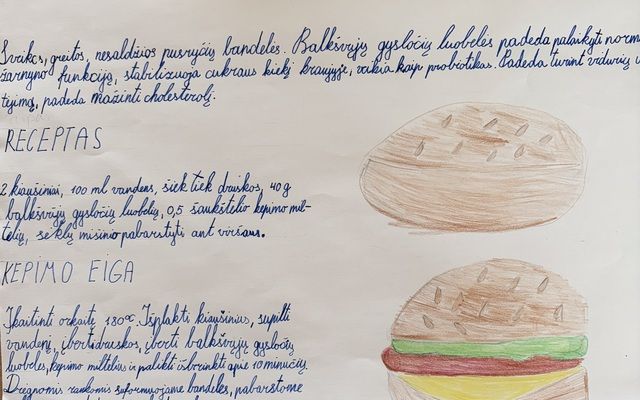 Sveikos, greitos, nesaldžios pusryčių bandelės. Balkšvųjų gysločių luobelės padeda palaikyti norm
žarnyno funkciją, stabilizuoja cukraus kiekį kraujyje, veikia kaip probiotikas. Padeda turint vidurių u
tėjimą, padeda mažinti cholesterolį.
RECEPTAS
2 kiaušiniai, 100 ml vandens, šiek tiek druskos, 40 g
balkšvųjų gysločių luobelių, 0,5 šaukštelio kepimo mil-
telių, sėklų mišinio pabarstyti ant viršaus.
KEPIMO EIGA
Įkaitinti orkaitę 180°C. Išplakti kiaušinius, supilti
vandenį, įberti druskos, įberti balkšvųjų gysločių
luobeles, kepimo miltelius ir palikti išbrinkti apie 10 minučių.
Drėgnomis rankomis suformuojame bandeles, pabarstome